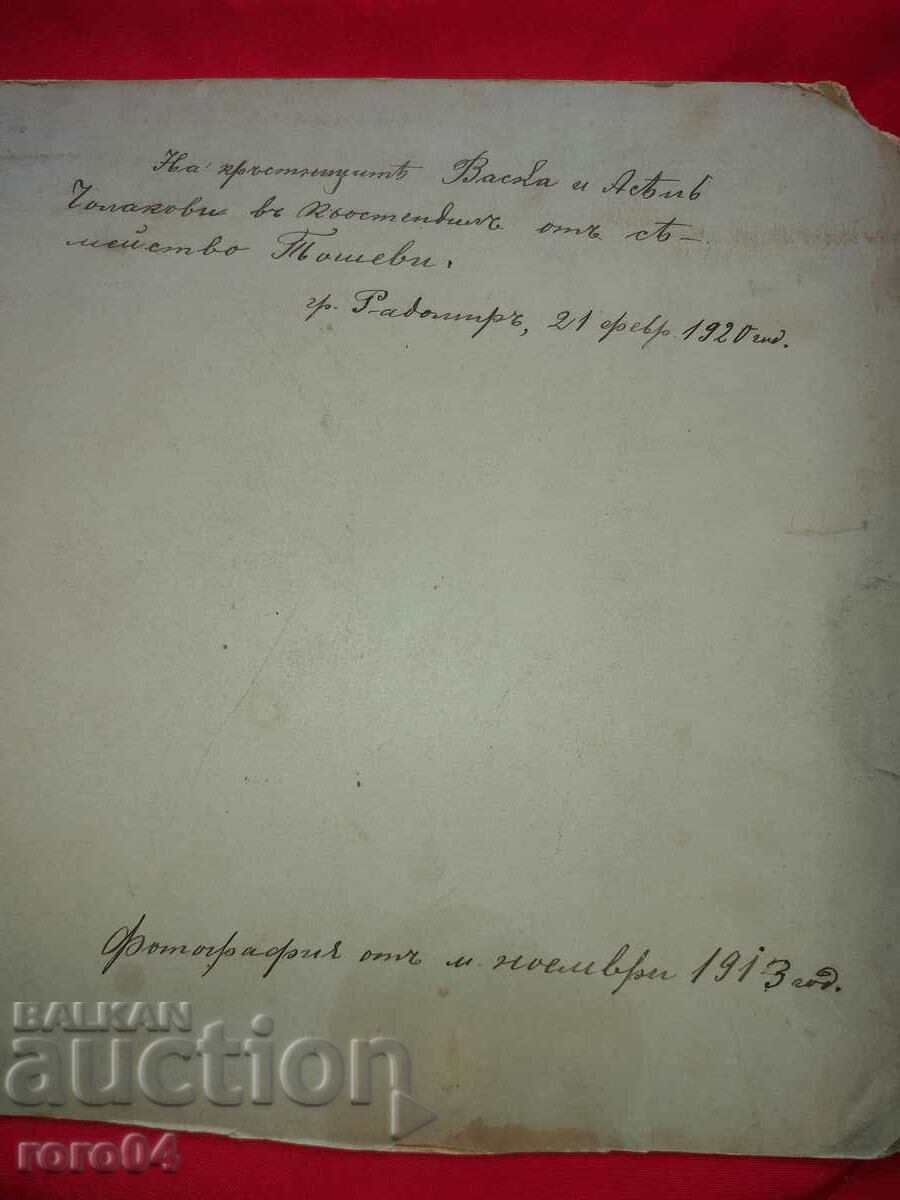 На кръстницитѣ Васка и Асѣнъ
Чолакови въ Кюстендилъ отъ сѣ-
мейство Тошеви.
гр. Радомиръ, 21 февр. 1920 год.
Фотография отъ м. ноември 1913 год.
BALKAN
auction
roro04